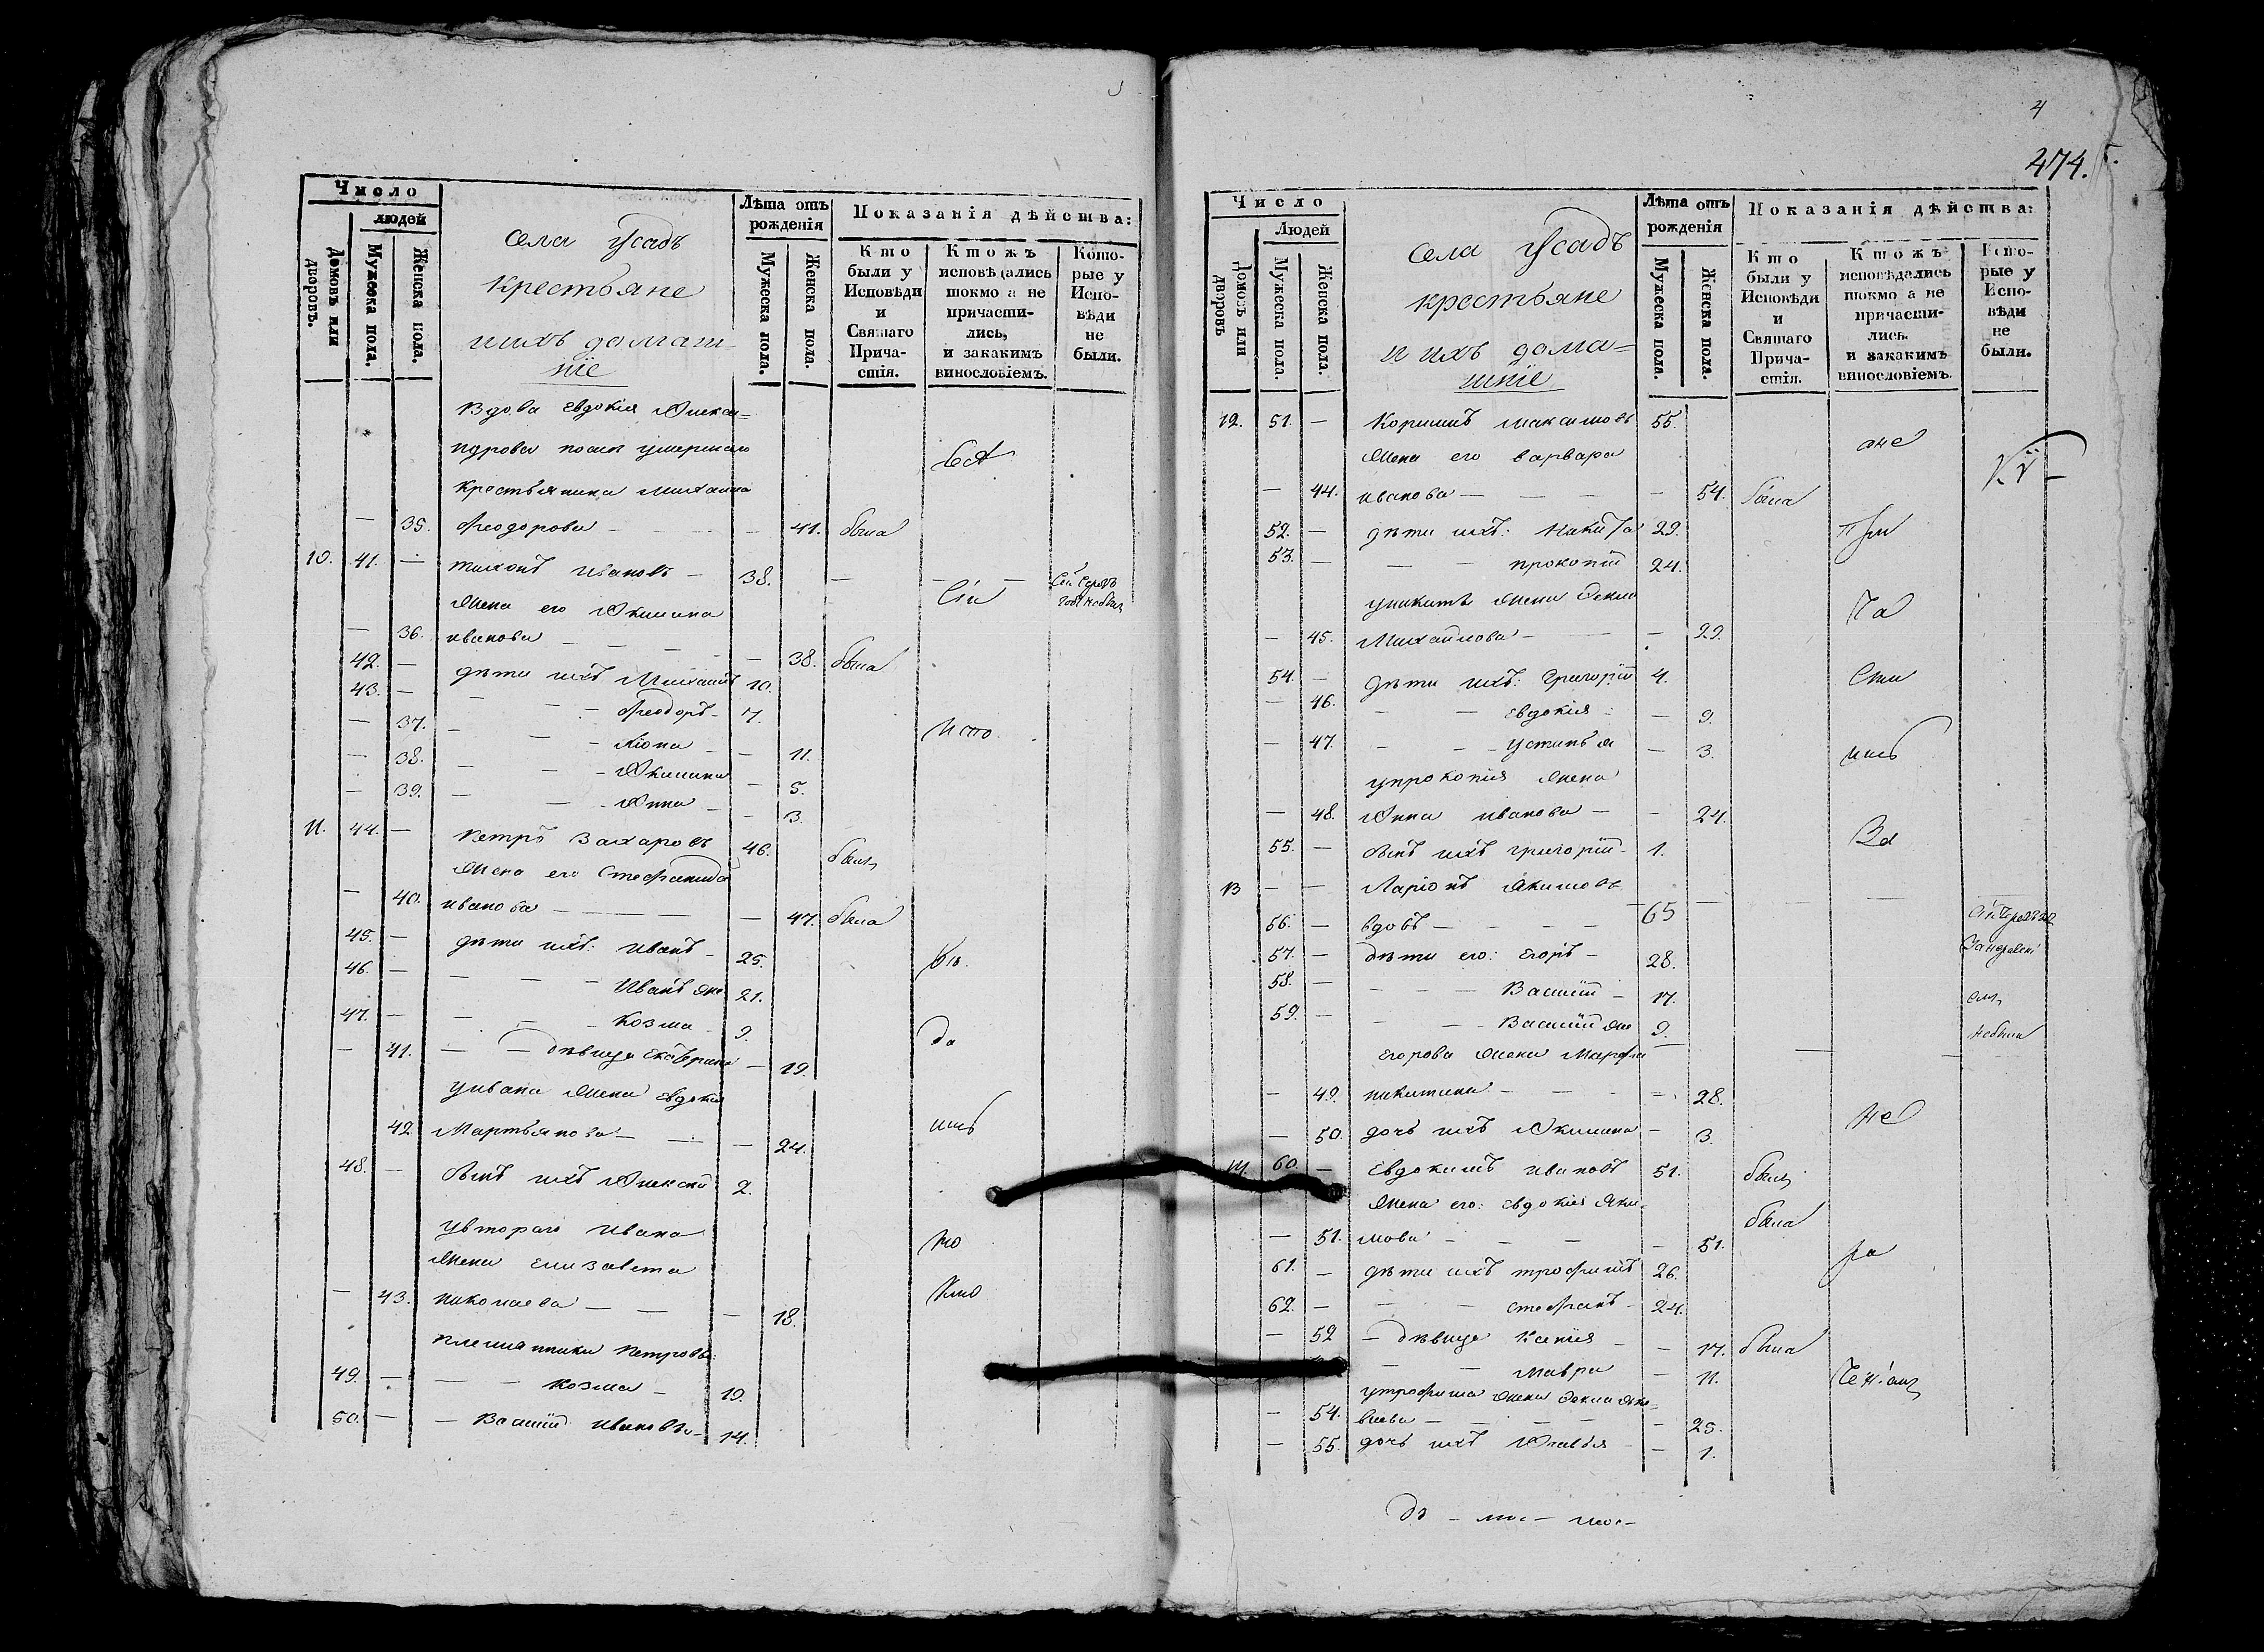 Число
людей
Домовъ или дворовъ.
Мужеска пола.
Женска пола.
села Усадъ
крестьяне
иихъ домаш-
ніе
Лѣта отъ рожденія
Мужеска пола.
Женска пола.
Показанія дѣйства:
Кто были у Исповѣди и Святаго Прича-стія.
Ктожъ исповѣдались токмо а не причасти-лись, и закакимъ винословіемъ.
Кото-рые у Испо-вѣди не были.
Вдова Евдокія Алекса=
ндрова послѣ умершаго
крестьянина Михаила
— 35. Ѳеодорова — — 41. была
10. 41. — Тихонъ Ивановъ — 38. — —
Жена его Акилина
— 36. иванова — — — 38. была
42. — дѣти ихъ Михаилъ 10.
43. — — — Ѳеодоръ 7.
— 37. — — — — 11.
— 38. — — Акилина — 5.
— 39. — — Анна — 3.
11. 44. — Петръ Захаровъ 46. былъ
Жена его Стефанида
— 40. иванова — — — 47. была
45. — дѣти ихъ: Иванъ — 25.
46. — — — Иванъ же 21.
47. — — — Козма 9.
— 41. — — дѣвица Екатерина — 19.
уивана жена Евдокія
42. Мартьянова — — — 24.
48. — Сынъ ихъ Алексѣй 2.
увтораго Ивана
жена Елизавета
— 43. николаева — — — 18.
племянники Петровы:
49. — — — Козма — 19.
50. — — Василій Ивановы — 14.
4
474.
Число
Людей
Домовъ или дворовъ
Мужеска пола.
Женска пола.
села Усадъ
крестьяне
и ихъ дома=
шніе
Лѣта отъ рожденія
Мужеска пола.
Женска пола.
Показанія дѣйства:
Кто были у Исповѣди и Святаго Прича-стія.
Ктожъ исповѣдались токмо а не причасти-лись. и закакимъ винословіемъ.
Кото-рые у Испо-вѣди не были.
12. 51. — Корнилъ Максимовъ 55.
Жена его варвара
— 44. иванова — — — — 54. была
52. — дѣти ихъ: Никита 29.
53. — — — прокопій 24.
уникиты жена Ѳекла
— 45. Михайлова — — — 29.
54. — Дѣти ихъ: Григорій 4.
— 46. — — Евдокія — 9.
— 47. — — Устинья — 3.
упрокопія жена
— 48. Анна иванова — — 24.
55. — Сынъ ихъ григорій 1.
13 — — Ларіонъ Якимовъ
56. — вдовъ — — — — 65 — — —
57. — дѣти его: Егоръ — 28.
58. — — — — Василій — 17.
59. — — — Василій же 9.
Егорова жена Марфа — — —
— 49. никитина — — — — 28.
— 50. дочь ихъ Акилина — 3.
14. 60. — Евдокимъ ивановъ 51. былъ
Жена его: Евдокія Яки-
— 51. мова — — — — 51. была
61. — дѣти ихъ трофимъ 26.
62. — — — стефанъ 24.
— 52 — дѣвица Ксенія — — 17. была
— — Мавра — 11.
утрофима жена Ѳекла
— 54. — — — — 25.
— 55. дочь ихъ — — 1.